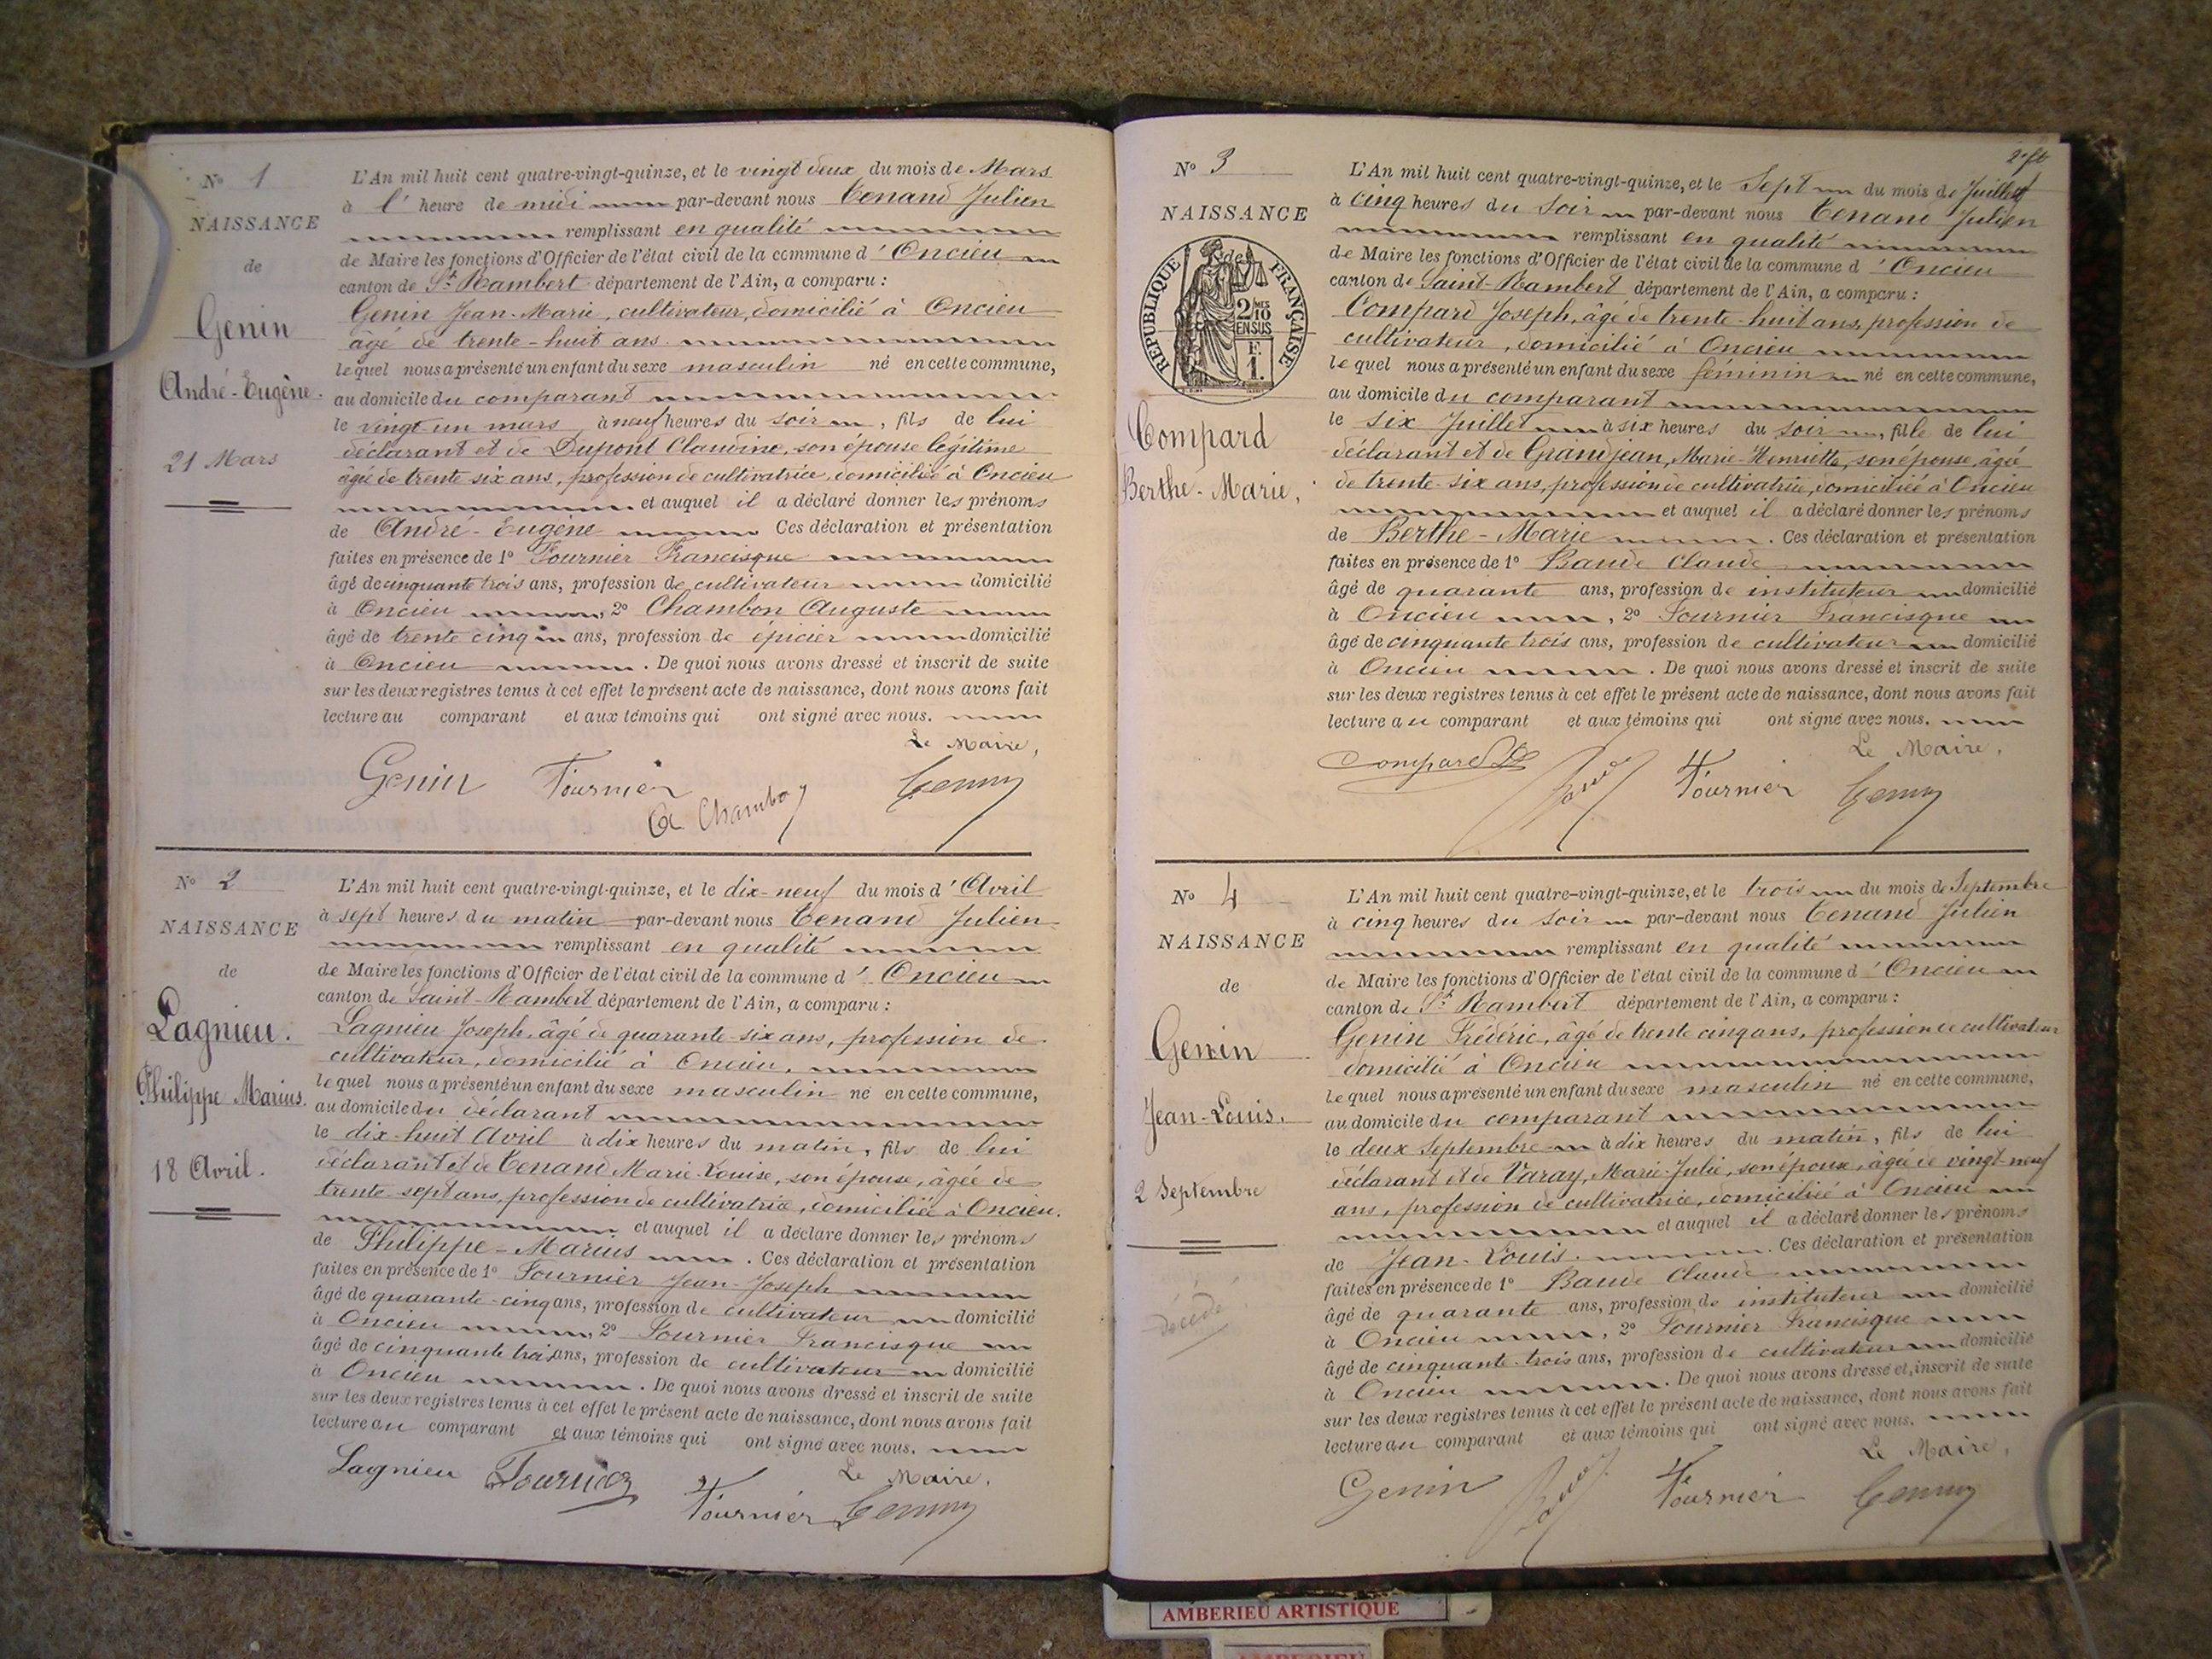 N° 1
NAISSANCE
de
Genin
André-Eugène.
21 Mars
L'An mil huit cent quatre-vingt-quinze, et le vingt deux du mois de Mars
à l' heure de midi par-devant nous Tenand Julien
remplissant en qualité
de Maire les fonctions d'Officier de l'état civil de la commune d'Oncieu
canton de St Rambert département de l'Ain, a comparu :
Genin Jean-Marie, cultivateur, domicilié à Oncieu
âgé de trente-huit ans
lequel nous a présenté un enfant du sexe masculin né en cette commune,
au domicile du comparant
le vingt-un mars, à neuf heures du soir, fils de lui
déclarant et de Dupont Claudine, son épouse légitime
âgée de trente six ans, profession de cultivatrice, domiciliée à Oncieu
et auquel il a déclaré donner les prénoms
de André-Eugène Ces déclaration et présentation
faites en présence de 1° Fournier Francisque
âgé de cinquante trois ans, profession de cultivateur domicilié
à Oncieu, 2° Chambon Auguste
âgé de trente cinq ans, profession de épicier domicilié
à Oncieu. De quoi nous avons dressé et inscrit de suite
sur les deux registres tenus à cet effet le présent acte de naissance, dont nous avons fait
lecture au comparant et aux témoins qui ont signé avec nous.
Le Maire,
Genin Fournier A Chambon Tenand
N° 2
NAISSANCE
de
Lagnieu.
Philippe Marius.
18 Avril.
L'An mil huit cent quatre-vingt-quinze, et le dix-neuf du mois d'Avril
à sept heures du matin par-devant nous Tenand Julien
remplissant en qualité
de Maire les fonctions d'Officier de l'état civil de la commune d'Oncieu
canton de Saint-Rambert département de l'Ain, a comparu :
Lagnieu Joseph, âgé de quarante-six ans, profession de
cultivateur, domicilié à Oncieu.
lequel nous a présenté un enfant du sexe masculin né en cette commune,
au domicile du déclarant
le dix-huit Avril à dix heures du matin, fils de lui
déclarant et de Tenand Marie-Louise, son épouse, âgée de
trente-sept ans, profession de cultivatrice, domiciliée à Oncieu.
et auquel il a déclaré donner les prénoms
de Philippe-Marius. Ces déclaration et présentation
faites en présence de 1° Fournier Jean-Joseph
âgé de quarante-cinq ans, profession de cultivateur domicilié
à Oncieu, 2° Fournier Francisque
âgé de cinquante trois ans, profession de cultivateur domicilié
à Oncieu. De quoi nous avons dressé et inscrit de suite
sur les deux registres tenus à cet effet le présent acte de naissance, dont nous avons fait
lecture au comparant et aux témoins qui ont signé avec nous.
Le Maire.
Lagnieu Fournier Fournier Tenand
2e ft
N° 3
NAISSANCE
de
RÉPUBLIQUE FRANÇAISE
2 MES
10
EN SUS
F.
1.
Compard
Berthe-Marie,
L'An mil huit cent quatre-vingt-quinze, et le Sept du mois de Juillet
à cinq heures du soir par-devant nous Tenand Julien
remplissant en qualité
de Maire les fonctions d'Officier de l'état civil de la commune d'Oncieu
canton de Saint-Rambert département de l'Ain, a comparu :
Compard Joseph, âgé de trente-huit ans, profession de
cultivateur, domicilié à Oncieu
lequel nous a présenté un enfant du sexe féminin né en cette commune,
au domicile du comparant
le six Juillet à six heures du soir, fille de lui
déclarant et de Grandjean, Marie-Henriette, son épouse, âgée
de trente-six ans, profession de cultivatrice, domiciliée à Oncieu
et auquel il a déclaré donner les prénoms
de Berthe-Marie. Ces déclaration et présentation
faites en présence de 1° Baude Claude
âgé de quarante ans, profession de instituteur domicilié
à Oncieu, 2° Fournier Francisque
âgé de cinquante trois ans, profession de cultivateur domicilié
à Oncieu. De quoi nous avons dressé et inscrit de suite
sur les deux registres tenus à cet effet le présent acte de naissance, dont nous avons fait
lecture au comparant et aux témoins qui ont signé avec nous.
Le Maire,
Compard Baude Fournier Tenand
N° 4
NAISSANCE
de
Genin
Jean-Louis.
2 Septembre
décédé
L'An mil huit cent quatre-vingt-quinze, et le trois du mois de Septembre
à cinq heures du soir par-devant nous Tenand Julien
remplissant en qualité
de Maire les fonctions d'Officier de l'état civil de la commune d'Oncieu
canton de St Rambert département de l'Ain, a comparu :
Genin Frédéric, âgé de trente cinq ans, profession de cultivateur
domicilié à Oncieu
lequel nous a présenté un enfant du sexe masculin né en cette commune,
au domicile du comparant
le deux Septembre à dix heures du matin, fils de lui
déclarant et de Varay, Marie-Julie, son épouse, âgée de vingt-neuf
ans, profession de cultivatrice, domiciliée à Oncieu
et auquel il a déclaré donner les prénoms
de Jean-Louis. Ces déclaration et présentation
faites en présence de 1° Baude Claude
âgé de quarante ans, profession de instituteur domicilié
à Oncieu, 2° Fournier Francisque
âgé de cinquante-trois ans, profession de cultivateur domicilié
à Oncieu. De quoi nous avons dressé et inscrit de suite
sur les deux registres tenus à cet effet le présent acte de naissance, dont nous avons fait
lecture au comparant et aux témoins qui ont signé avec nous.
Le Maire,
Genin Baude Fournier Tenand
AMBERIEU ARTISTIQUE
AMBERIEU